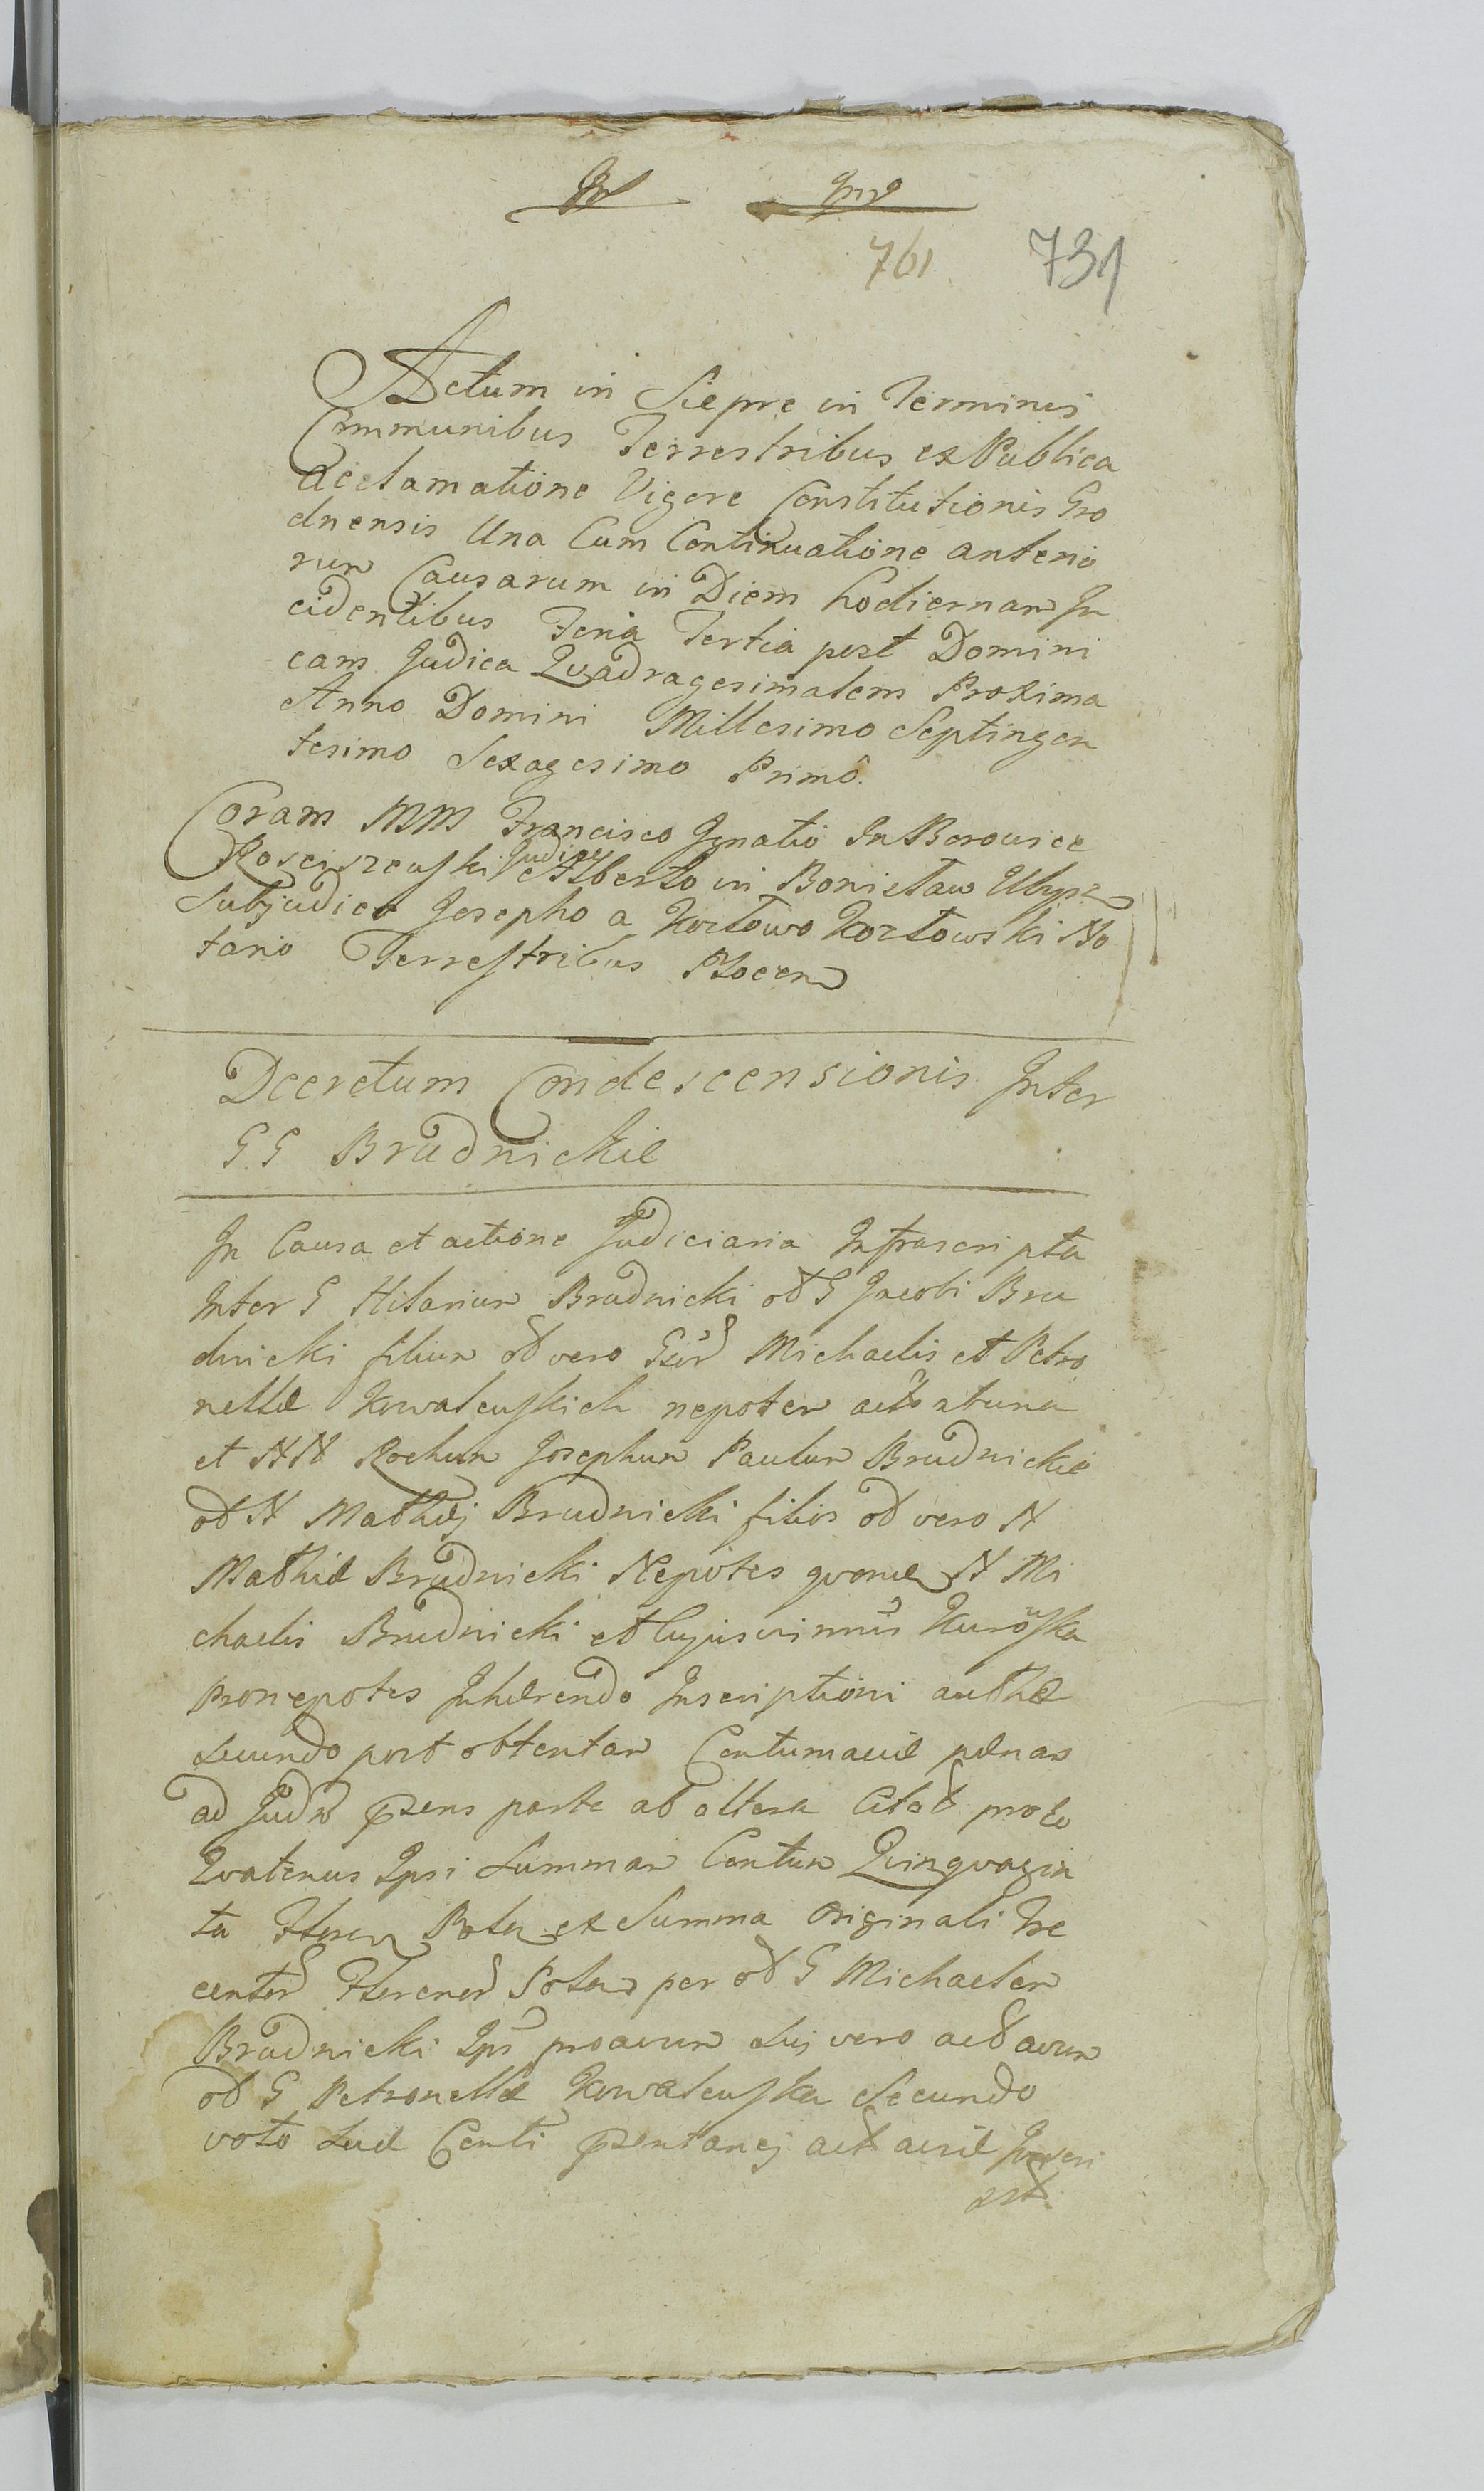 761 731
Actum in Siepre in Terminis
Communibus Terrestribus ex Publica
acclamatione Vigore Constitutionis Gro
dnensis Una Cum Continuatione anterio
rum Causarum in Diem hodiernam In
cidentibus Feria Tertia post Domini
cam Judica Quadragesimalem Proxima
Anno Domini Millesimo Septingen
tesimo Sexagesimo Primô.
Coram MM Francisco Ignatio In Borowice
Rosciszewski Judice Alberto in Bonisław Ubysz
Subjudice Josepho a Kozłowo Kozłowski No
tario Terrestribus Plocen
Decretum Condescensionis Inter
G.G Brudnickie
In Causa et actione Judiciaria Infrascripta
Inter G Hilarium Brudnicki od G Jacobi Bru
dnicki filium od vero Michaelis et Petro
nellæ Kowalewskich nepotem
et NN Rochum Josephum Paulum Brudnickie
od N Mathej Brudnicki filios od vero N
Mathiæ Brudnicki Nepotes N Mi
chaelis Brudnicki et
pronepotes Inhærendo Inscriptioni
post obtentam Contumaciæ pænam
ad parte ab altera
Quatenus Ipsi Summam Centum Quinquagin
ta ex Summa Originali Tre
per od G Michaelem
Brudnicki proavum vero avum
od G Petronellæ Kowalewska Secundo
voto Suæ